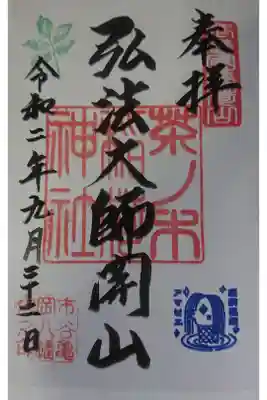 奉拝
弘法大師開山
茶ノ木
稲荷
神社
令和二年九月二十二日
市谷亀
岡八幡